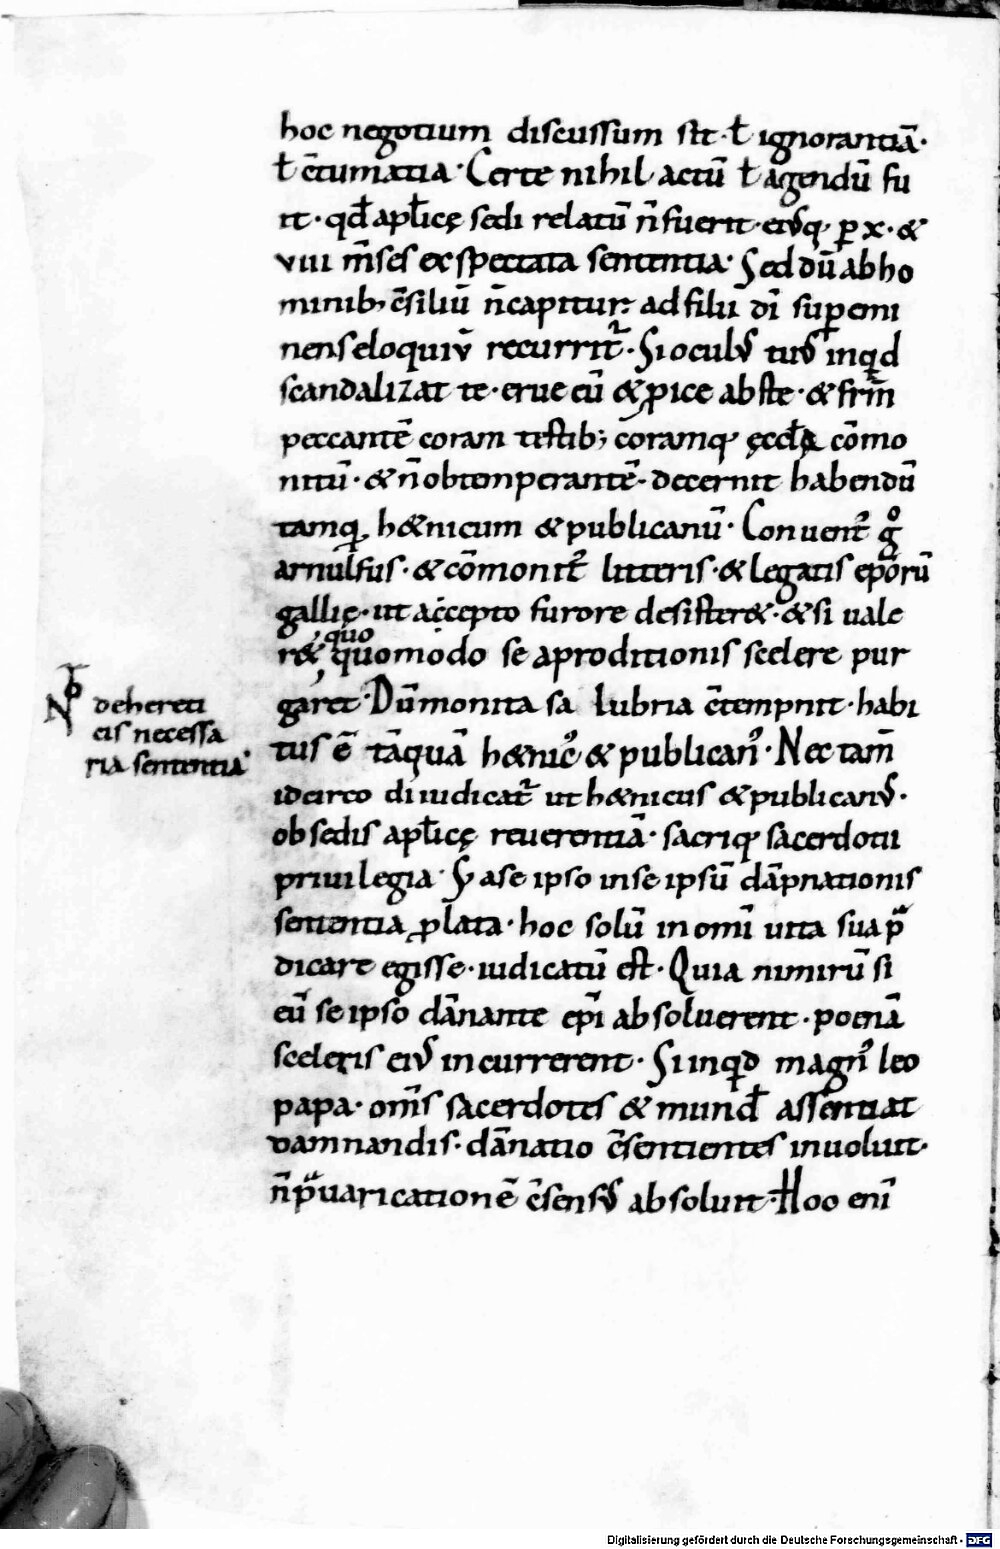 hoc negotium discussum sit· ł ignorantiā·
ł c̄tumatia· Certe nihil actū ł agendū fu
it· qđ apłicę sedi relatū n̄ fuerit· eiusq· ꝑ x· &
viii m̄ses exspectata sententia· Sed dū ab ho
minib; c̄siliū n̄ capitur· ad filii dī suꝑemi
nens eloquiū recurrit᷒· Si oculus tuus inquid
scandalizat te· erue eū & ꝓice abs te· & frm̄
peccantē coram testib; coramq· ęccłę cōmo
nitū· & n̄ obtemperantē· decernit habendū
tamq̄ h&nicum & publicanū· Conuenit᷒ gͦ
arnulfus· & cōmonit᷒ litteris· & legatis ep̄orū
gallię· ut accepto furore desister&· & si uale
quo
r& quomodo se a proditionis scelere pur
gar&· Dū monita salubria c̄tempnit· habi
tus ē tāquā h&nic᷒ & publican᷒· Nec tam̄
idcirco diiudicat᷒ ut h&nicus & publicanus·
ob sedis apłicę reuerentiā· sacriq· sacerdotii
priuilegia· S; a se ipso in se ipsū dāpnationis
sententia ꝓlata· hoc solū in om̄i uita sua p̄
dicare egisse· iudicatū est· Quia nimirū si
eū se ipso dānante ep̄i absoluerent· poenā
sceleris eius incurrerent· Si inquid magn᷒ leo
papa· om̄s sacerdotes & mund᷒ assentiat
damnandis· dānatio c̄sentientes inuoluit·
n̄ p̄uaricationē c̄sensus absoluit· Hoc enī
de hereti
cis necessa
ria sententia·
Digitalisierung gefördert durch die Deutsche Forschungsgemeinschaft - DFG